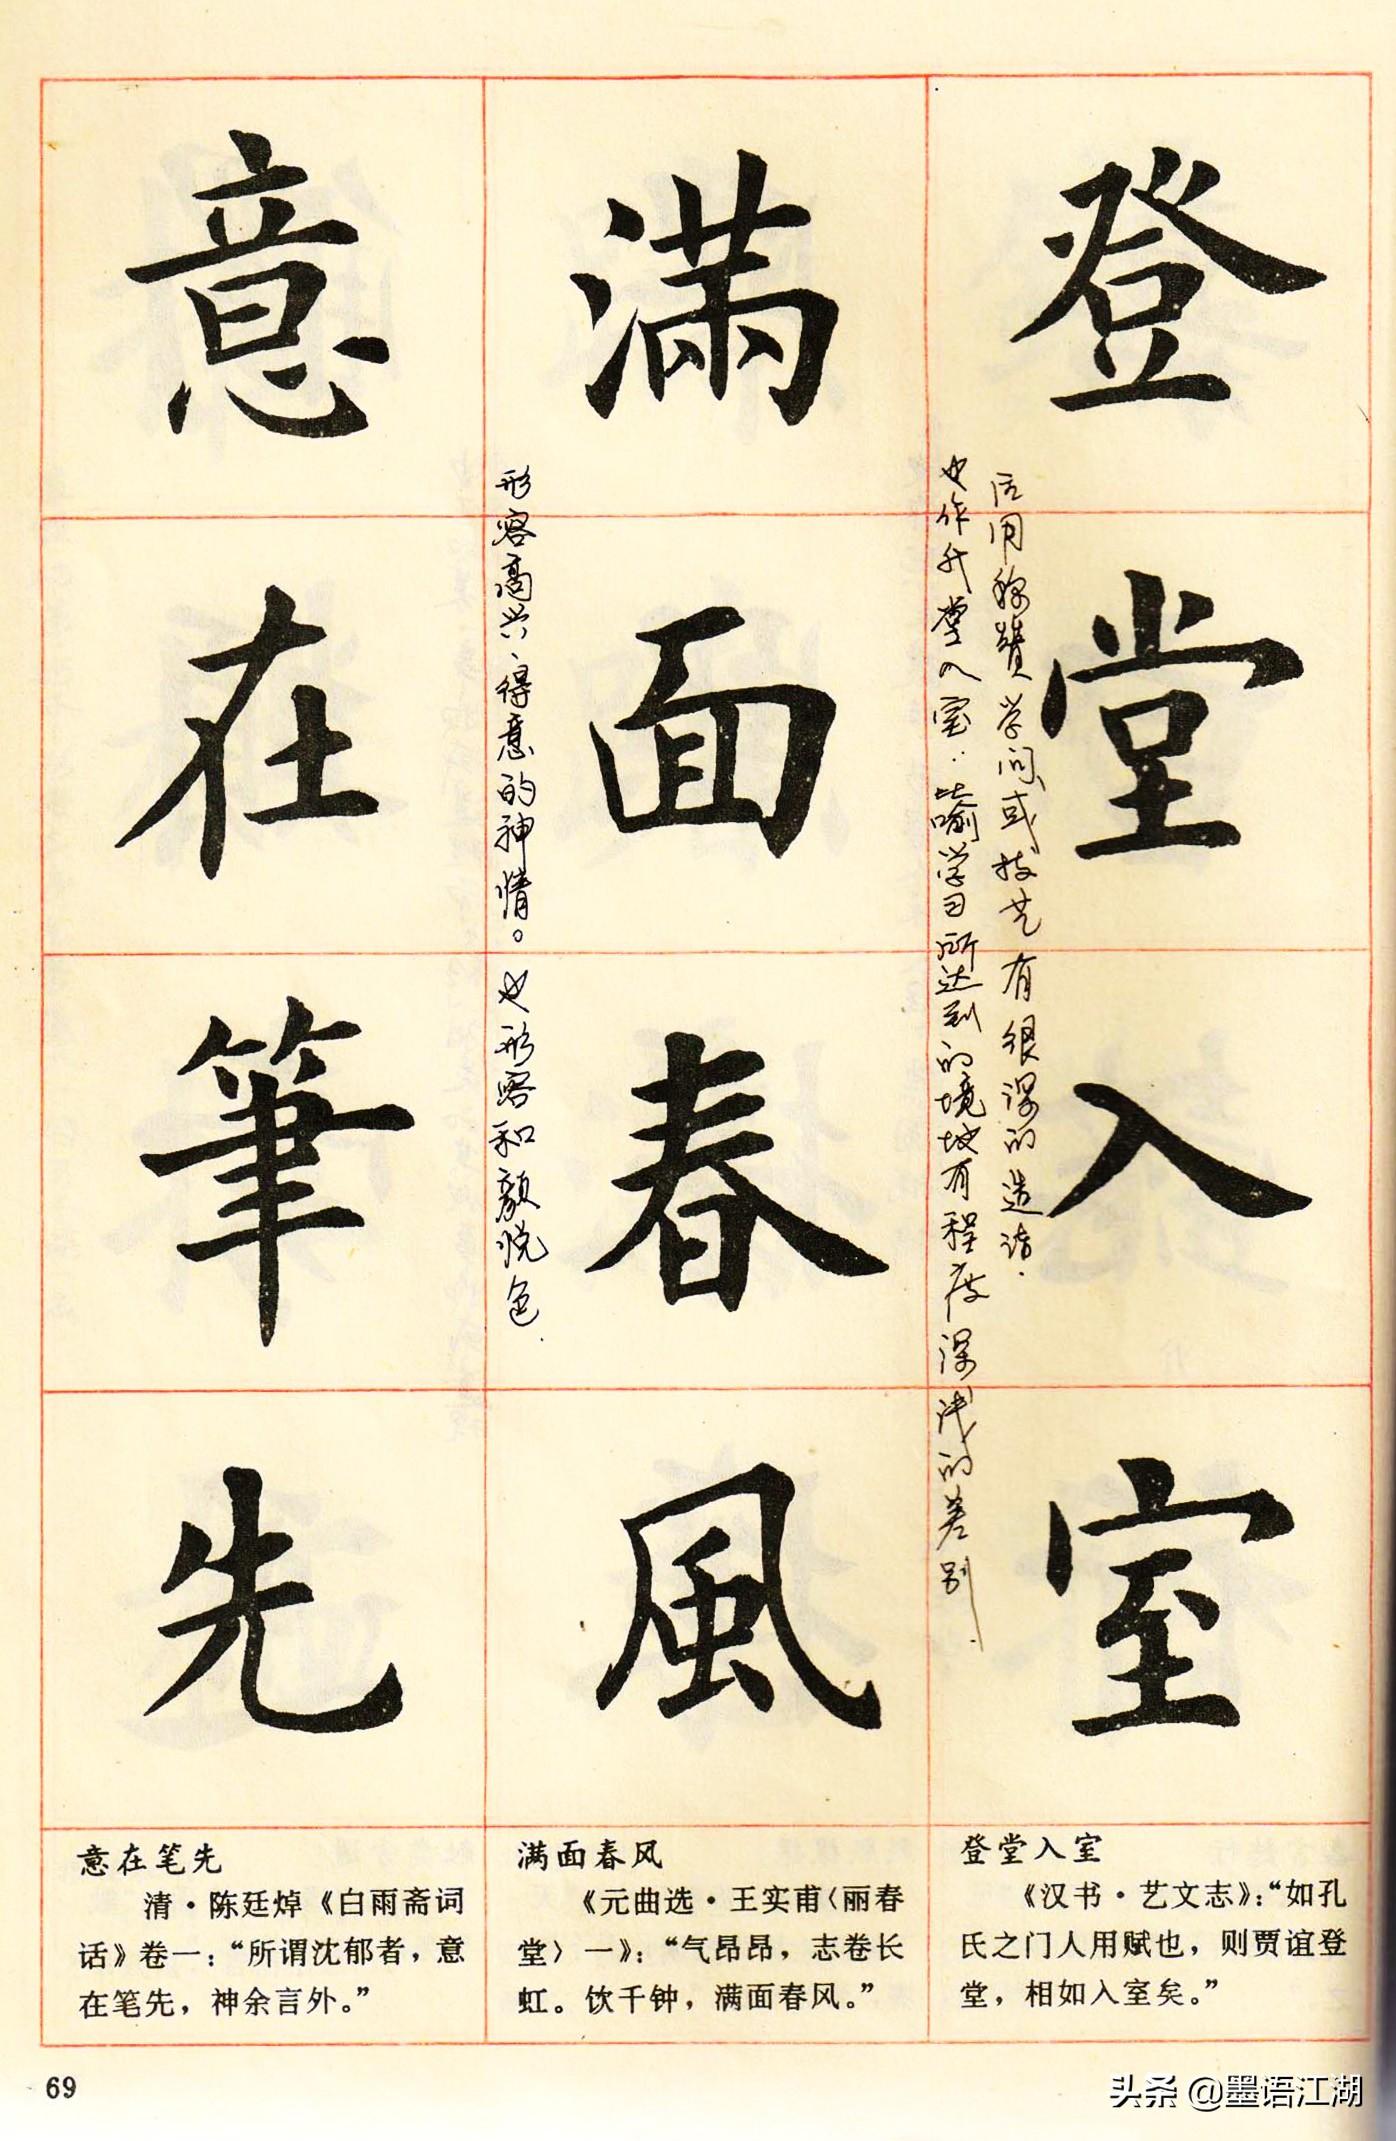 登堂入室
后用称赞学问或技艺有很深的造诣.
也作升堂入室:比喻学习所达到的境地有程度深浅的差别.
滿面春風
形容高兴、得意的神情。也形容和颜悦色.
意在筆先
登堂入室
《汉书·艺文志》:“如孔
氏之门人用赋也，则贾谊登
堂，相如入室矣。”
满面春风
《元曲选·王实甫〈丽春
堂〉一》:“气昂昂，志卷长
虹。饮千钟，满面春风。”
意在笔先
清·陈廷焯《白雨斋词
话》卷一:“所谓沈郁者，意
在笔先，神余言外。”
69
头条 @墨语江湖